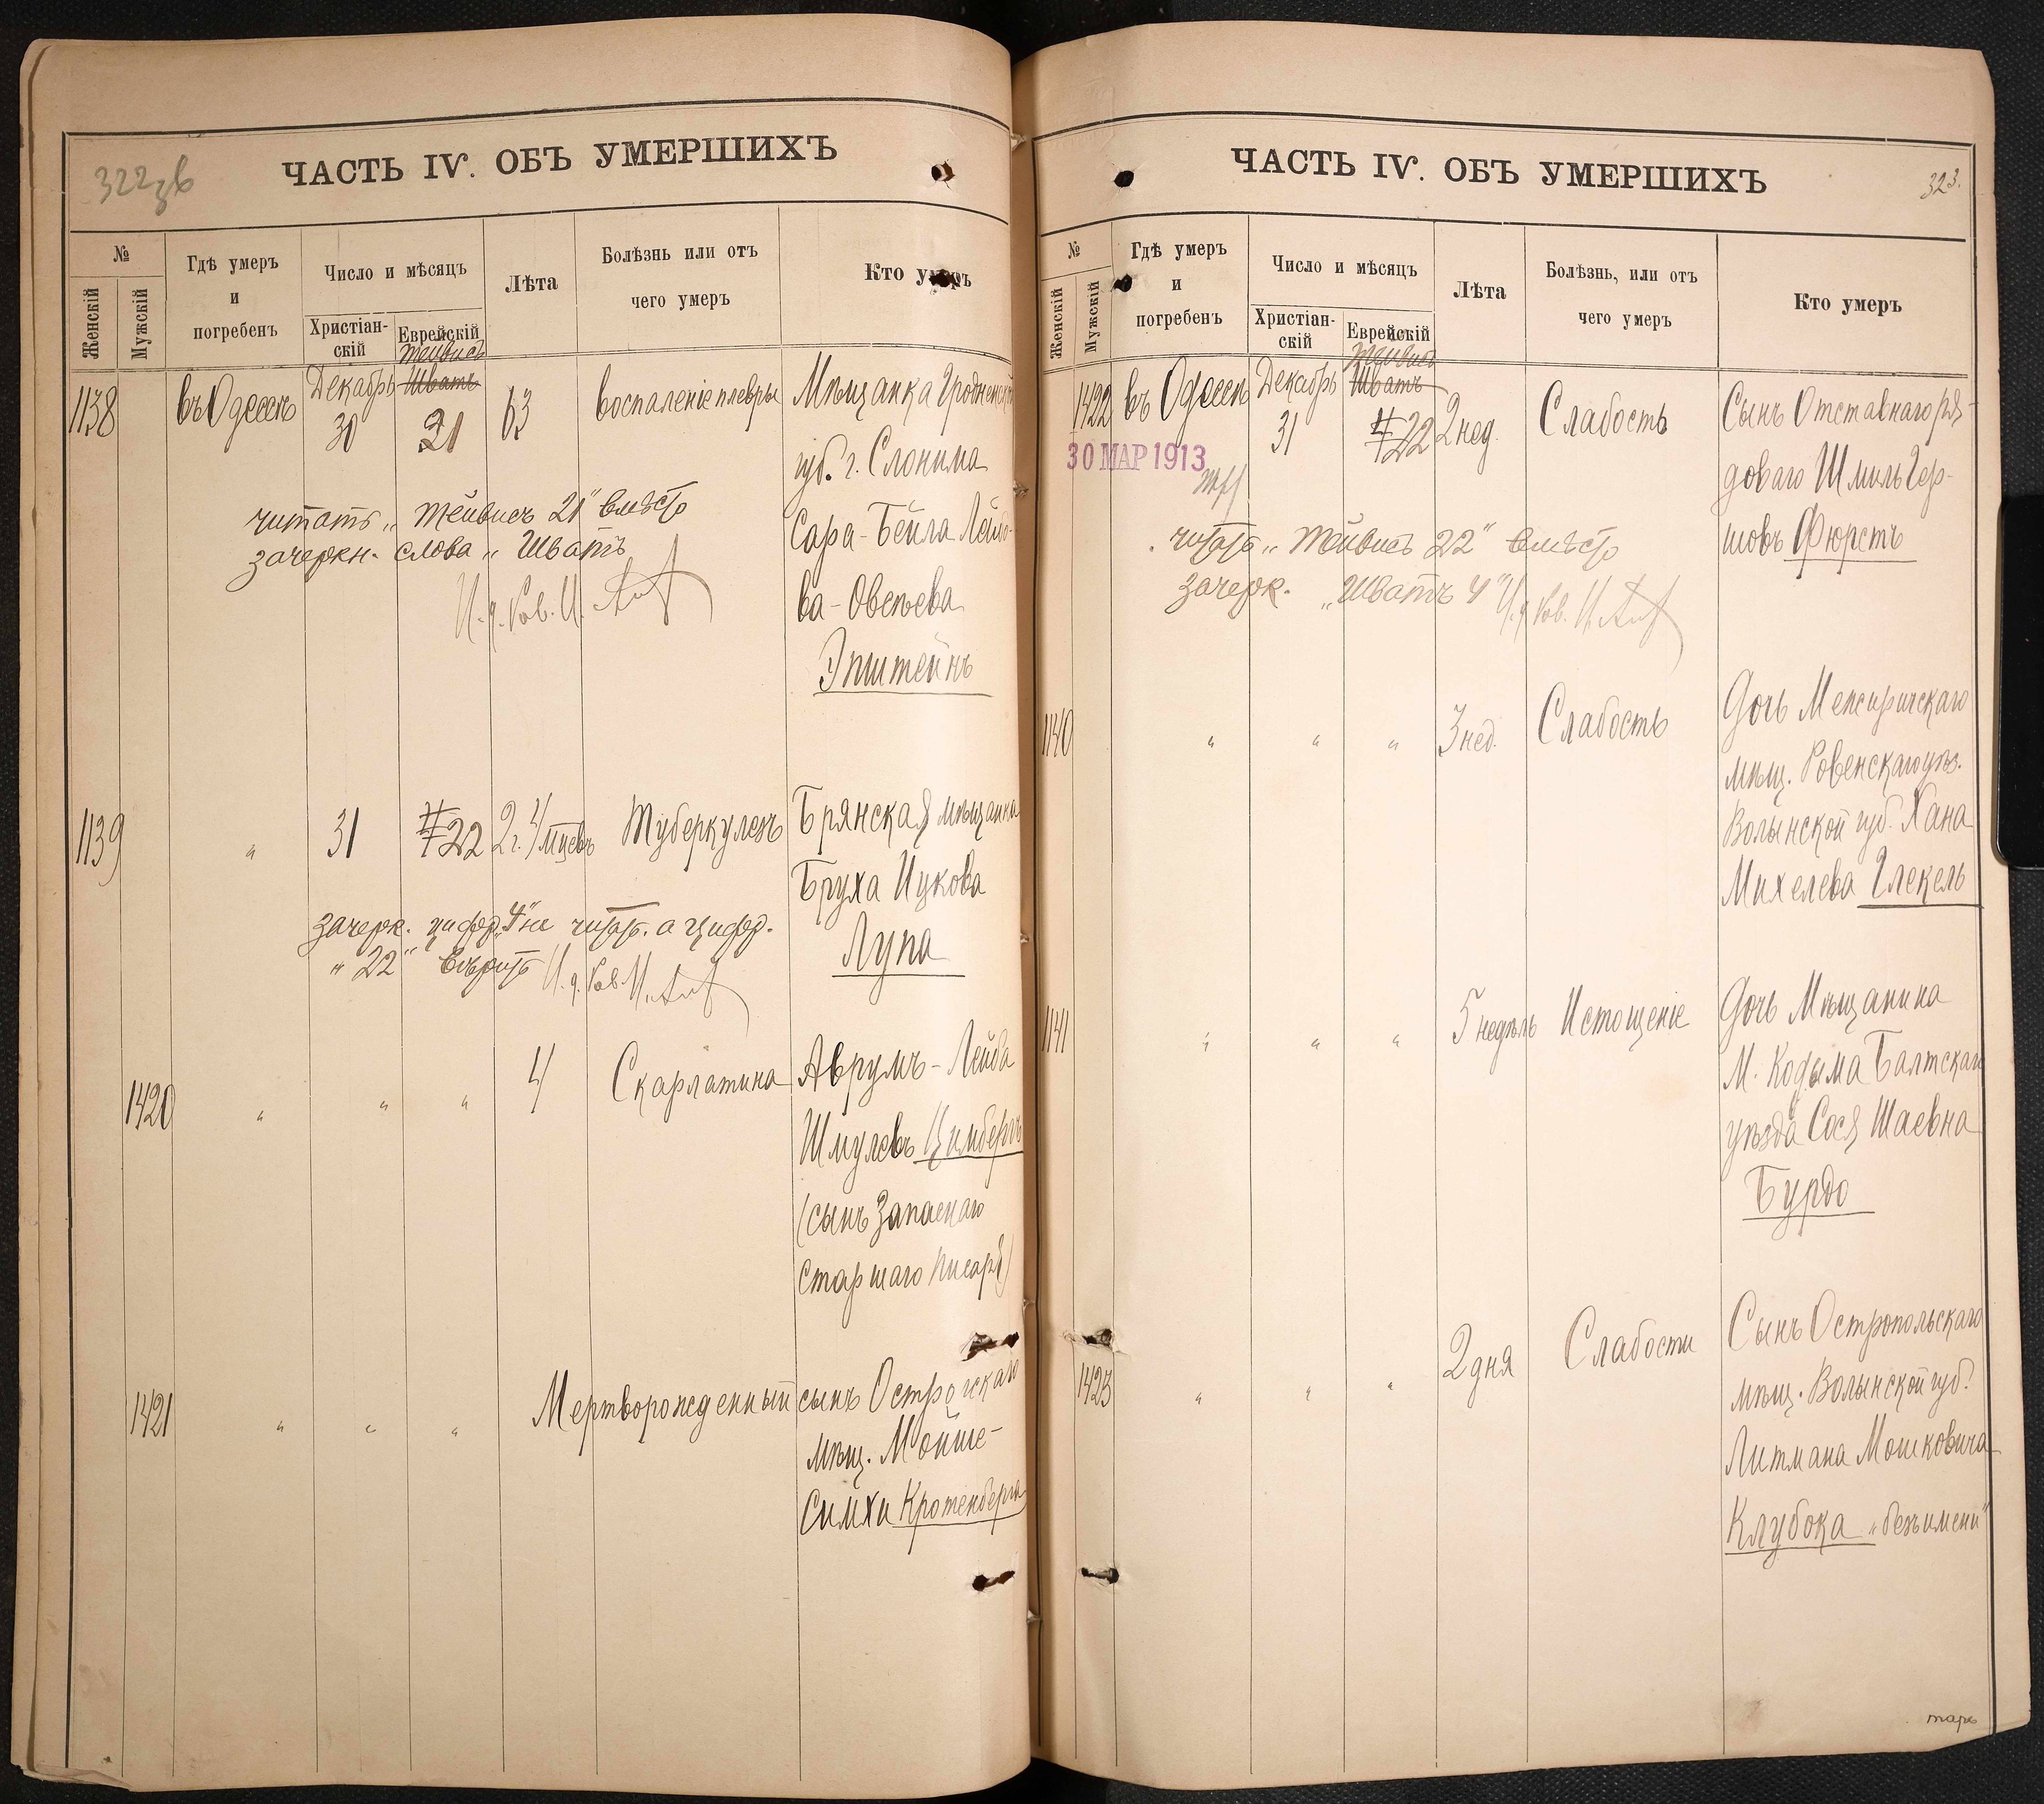 322 об
ЧАСТЬ IV. ОБЪ УМЕРШИХЪ
№
Женскій
Мужскій
Гдѣ умеръ
и
погребенъ
Число и мѣсяцъ
Христіан-
скій
Еврейскій
Лѣта
Болѣзнь или отъ
чего умеръ
Кто умеръ
Тейвисъ
1138 въ Одессѣ Декабрь Шватъ 63 воспаленіе плевры Мѣщанка Гродненской
30 21
губ. г. Слонима
Сара-Бейла Лейбо-
ва-Овсеева
Эпштейнъ
читать „Тейвисъ 21" вмѣсто
зачеркн. слова „Шватъ
И. д. Рав. И.
1139 " 31 4 22 2 г. 4 мѣсяцъ Туберкулезъ Брянская мѣщанка
Бруха Ицкова
Лупа
зачерк. цифр. „4" не читать. а цифр.
"22" вѣрить И. д. Рав. И.
1420 " " " 4 Скарлатина Аврумъ-Лейба
Шмулевъ Цимбергъ
(сынъ Запаснаго
старшаго писаря)
1421 " " " Мертворожденный сынъ Острогскаго
мѣщ. Мойше-
Симхи Кротенберга
ЧАСТЬ IV. ОБЪ УМЕРШИХЪ
323.
№
Женскій
Мужскій
Гдѣ умеръ
и
погребенъ
Число и мѣсяцъ
Христіан-
скій
Еврейскій
Лѣта
Болѣзнь, или отъ
чего умеръ
Кто умеръ
Тейвисъ
1422 въ Одессѣ Декабрь Шватъ 2 нед. Слабость Сынъ Отставнаго ря-
31 4 22
доваго Шмиль Гер-
шовъ Фюрстъ
30 МАР 1913
читать „Тейвисъ 22" вмѣсто
зачерк. „Шватъ 4" И. д. Рав. И.
1140 " " " 3 нед. Слабость Дочь Межиричскаго
мѣщ. Ровенскаго уѣз.
Волынской губ. Хана
Михелева Глекель
1141 " " " 5 недѣль Истощеніе Дочь Мѣщанина
М. Кодыма Балтскаго
уѣзда Сося Шаевна
Бурдо
1423 " " " 2 дня Слабости Сынъ Остропольскаго
мѣщ. Волынской губ.
Литмана Мошковича
Клубока „безъ имени"